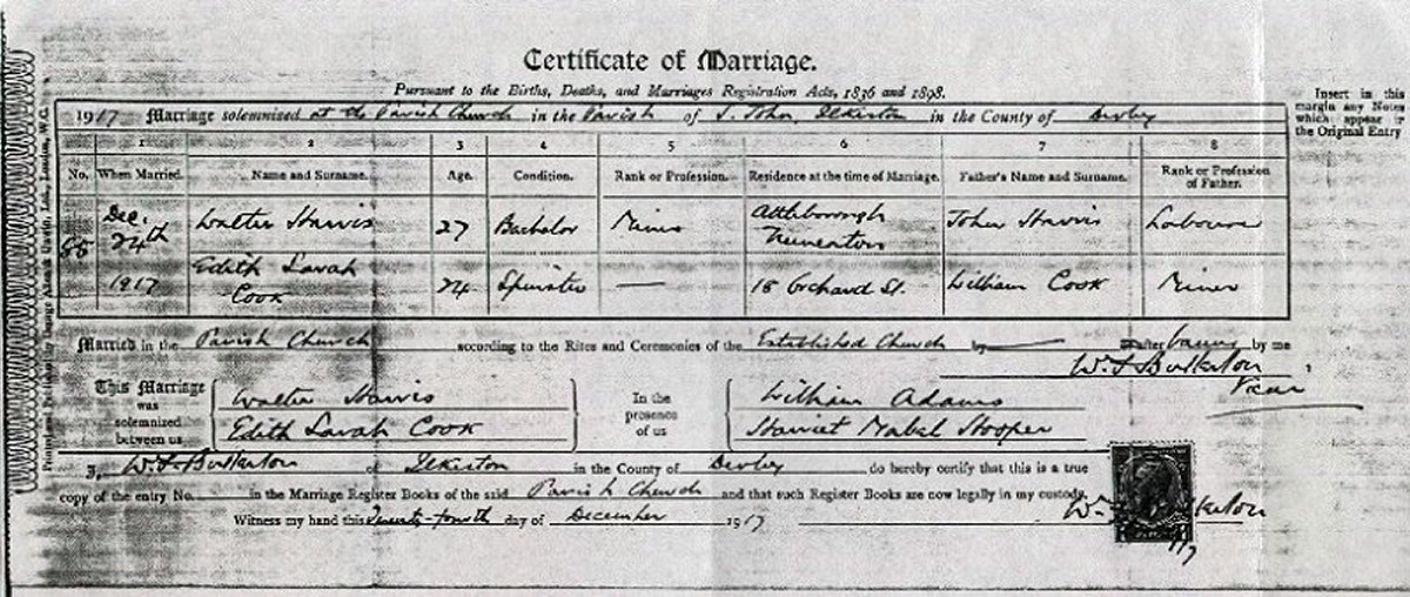 Certificate of Marriage.
Pursuant to the Births, Deaths, and Marriages Registration Acts, 1836 and 1898.
Insert in this
margin any Notes
which appear in
the Original Entry
1917 Marriage solemnized at the Parish Church in the Parish of S. John, Ilkeston in the County of Derby
1 2 3 4 5 6 7 8
No. When Married. Name and Surname. Age. Condition. Rank or Profession. Residence at the time of Marriage. Father's Name and Surname. Rank or Profession of Father.
85 Dec. 24th 1917 Walter Harris 27 Bachelor Miner Attleborough Nuneaton John Harris Labourer
Edith Sarah Cook 24 Spinster — 18 Orchard St. William Cook Miner
Married in the Parish Church according to the Rites and Ceremonies of the Established Church by — after banns by me
Vicar
This Marriage was solemnized between us Walter Harris In the presence of us William Adams
Edith Sarah Cook Harriet Mabel Hooper
I, of Ilkeston in the County of Derby do hereby certify that this is a true
copy of the entry No. in the Marriage Register Books of the said Parish Church and that such Register Books are now legally in my custody.
Witness my hand this Twenty-fourth day of December 1917